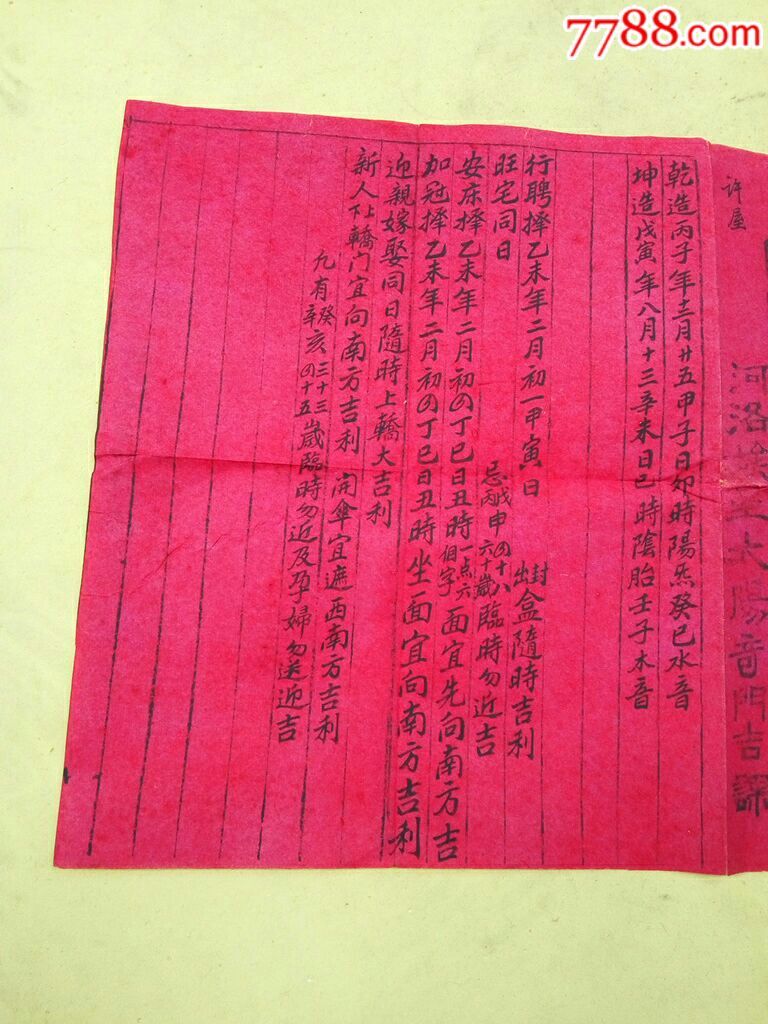 7788.com
中国收藏热线
许屋
河洛
太陽奇門吉課
乾造丙子年十二月廿五甲子日卯時陽炁癸巳水音
坤造戊寅年八月十三辛未日巳時陰胎壬子木音
行聘擇乙未年二月初一甲寅日 出封盒隨時吉利
旺宅同日 忌戊丙申四十八六十歲臨時勿近吉
安床擇乙未年二月初四丁巳日丑時一点六個字面宜先向南方吉
加冠擇乙未年二月初四丁巳日丑時坐面宜向南方吉利
迎親嫁娶同日隨時上轎大吉利
新人上下轎门宜向南方吉利 開傘宜遮西南方吉利
九有癸辛亥三十三四十五歲臨時勿近及孕婦勿送迎吉